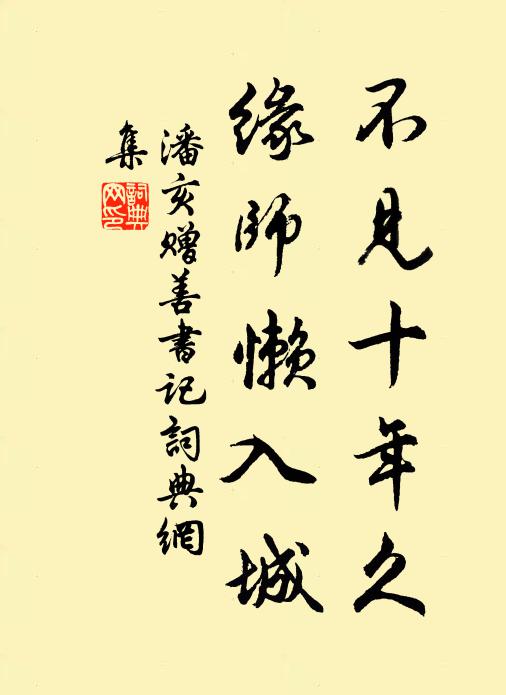 不見十年久
緣師懶入城
潘亥贈善書記詞典網
集
詞典
网印